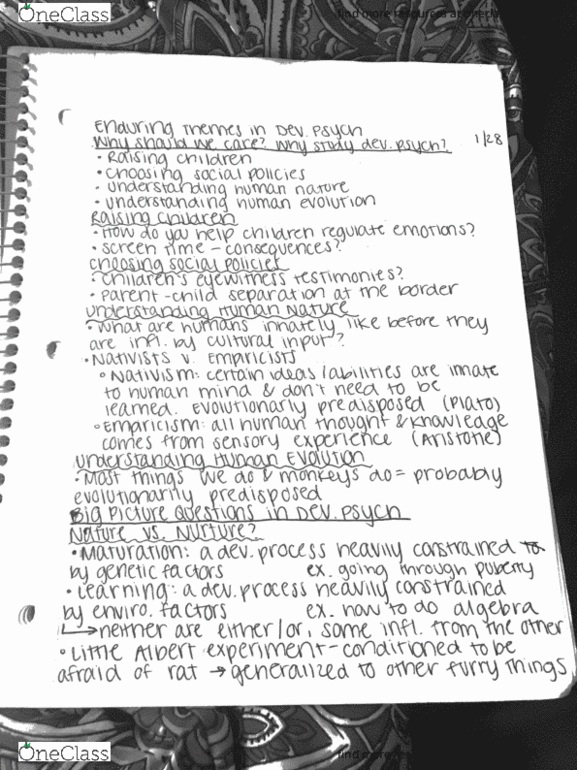 OneClass
find more resources at oneclass.com
Enduring Themes in Dev. Psych
1/28
Why should we care? Why study dev. psych?
• Raising children
• choosing social policies
• understanding human nature
• understanding human evolution
Raising Children
• How do you help children regulate emotions?
• screen time - consequences?
choosing social policies
• children's eyewitness testimonies?
• parent-child separation at the border
understanding Human Nature
• what are humans innately like before they
are infl. by cultural input?
• Nativists v. Empiricists
◦ Nativism: certain ideas/abilities are innate
to human mind & don't need to be
learned. Evolutionarily predisposed (Plato)
◦ Empiricism: all human thought & knowledge
comes from sensory experience (Aristotle)
understanding Human Evolution
• Most things we do & monkeys do = probably
evolutionarily predisposed
Big Picture Questions in Dev. Psych
Nature vs. Nurture?
• Maturation: a dev. process heavily constrained to
by genetic factors ex. going through puberty
• Learning: a dev. process heavily constrained
by enviro. factors ex. how to do algebra
↳ neither are either/or, some infl. from the other
• Little Albert experiment - conditioned to be
afraid of rat → generalized to other furry things
OneClass
find more